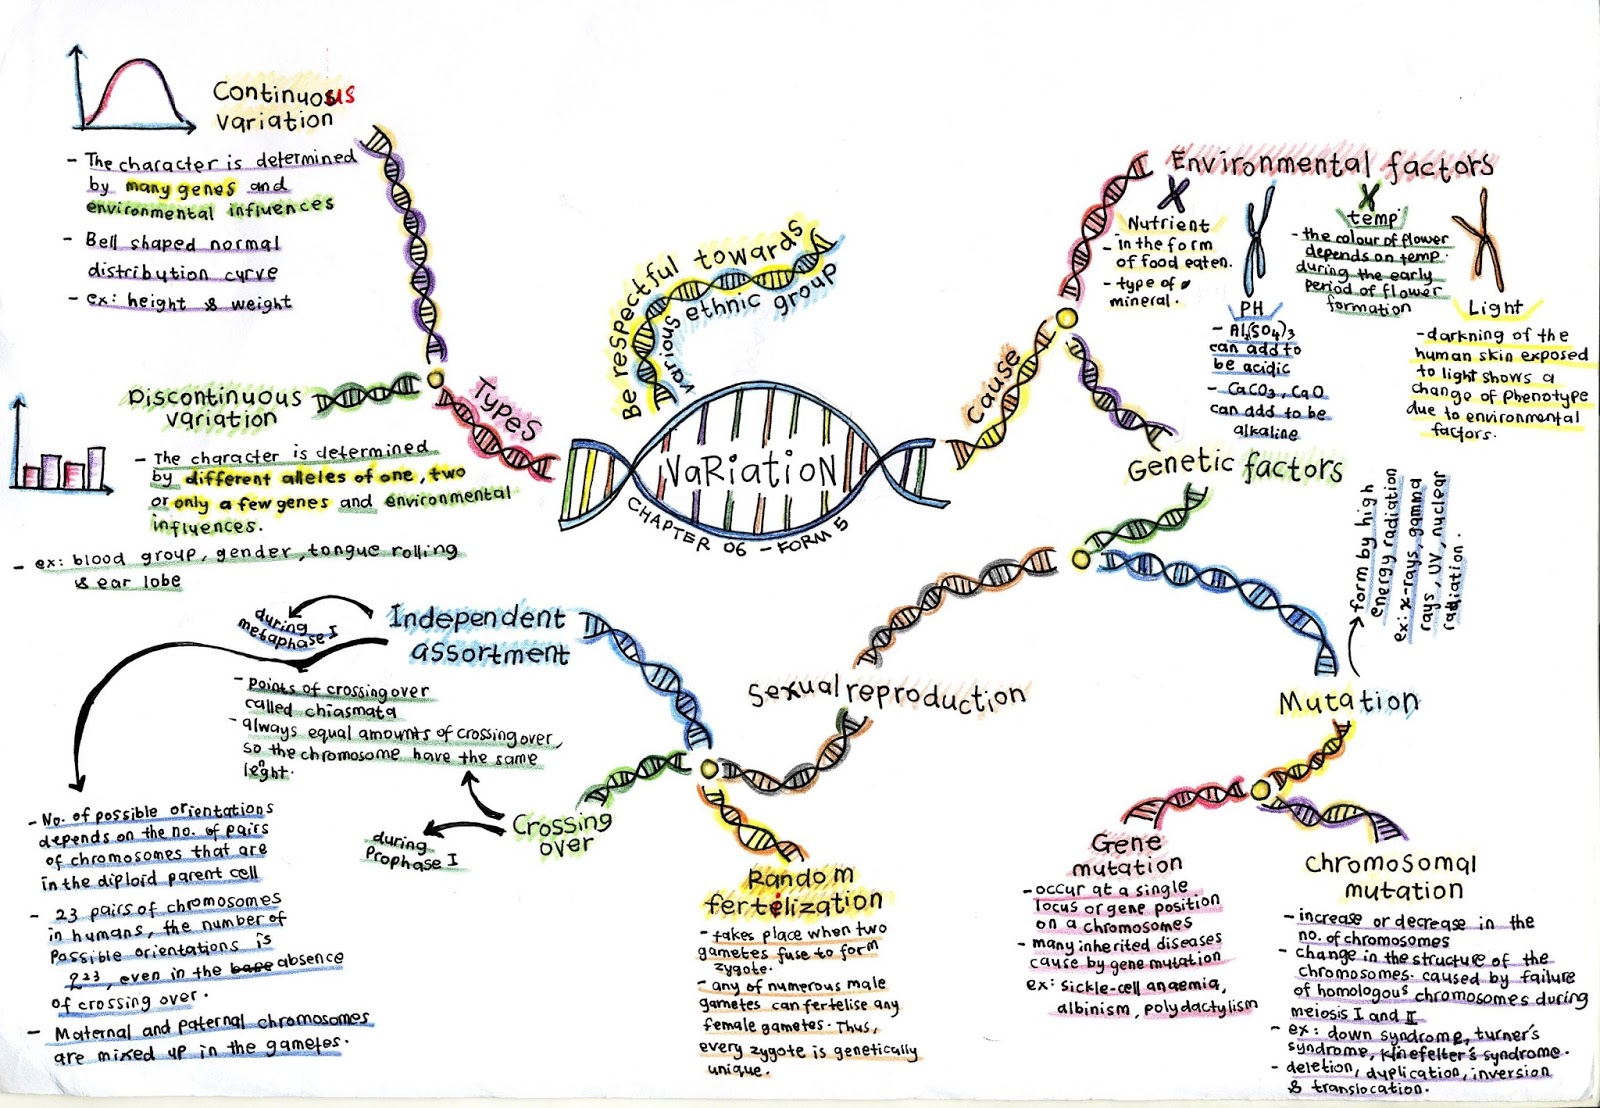 Continuous
variation
- The character is determined
by many genes and
environmental influences
- Bell shaped normal
distribution curve
- ex: height & weight
Discontinuous
variation
- The character is determined
by different alleles of one, two
or only a few genes and environmental
influences.
- ex: blood group, gender, tongue rolling
& ear lobe
Types
Be respectful towards
various ethnic group
VaRiatioN
CHAPTER 06 - FORM 5
Cause
Environmental factors
Nutrient
- in the form
of food eaten.
- type of
mineral.
PH
- Al2(SO4)3
can add to
be acidic
- CaCO3, CaO
can add to be
alkaline
temp.
- the colour of flower
depends on temp.
during the early
period of flower
formation
Light
- darkning of the
human skin exposed
to light shows a
change of Phenotype
due to environmental
factors.
Genetic factors
Sexual reproduction
Mutation
form by high
energy radiation
ex: x-rays, gamma
rays, UV, nuclear
radiation.
Gene
mutation
- occur at a single
locus or gene position
on a chromosomes
- many inherited diseases
cause by gene mutation
ex: sickle-cell anaemia,
albinism, polydactylism
Chromosomal
mutation
- increase or decrease in the
no. of chromosomes
- change in the structure of the
chromosomes. caused by failure
of homologous chromosomes during
meiosis I and II
- ex: down syndrome, turner's
syndrome, klinefelter's syndrome.
- deletion, duplication, inversion
& translocation.
Independent
assortment
during
metaphase I
- No. of possible orientations
depends on the no. of pairs
of chromosomes that are
in the diploid parent cell
- 23 pairs of chromosomes
in humans, the number of
possible orientations is
2^23, even in the absence
of crossing over.
- Maternal and paternal chromosomes
are mixed up in the gametes.
Crossing
over
during
Prophase I
- Points of crossing over
called chiasmata
- always equal amounts of crossing over,
so the chromosome have the same
lenght.
Random
fertilization
- takes place when two
gametes fuse to form
zygote.
- any of numerous male
gametes can fertelise any
female gametes. Thus,
every zygote is genetically
unique.